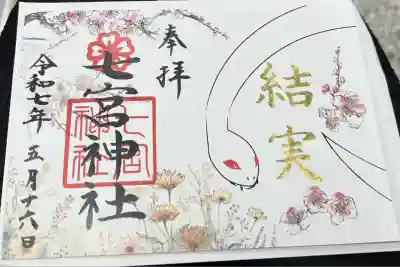 奉拝
七宮神社
七宮
神社
令和七年 五月十六日
結実